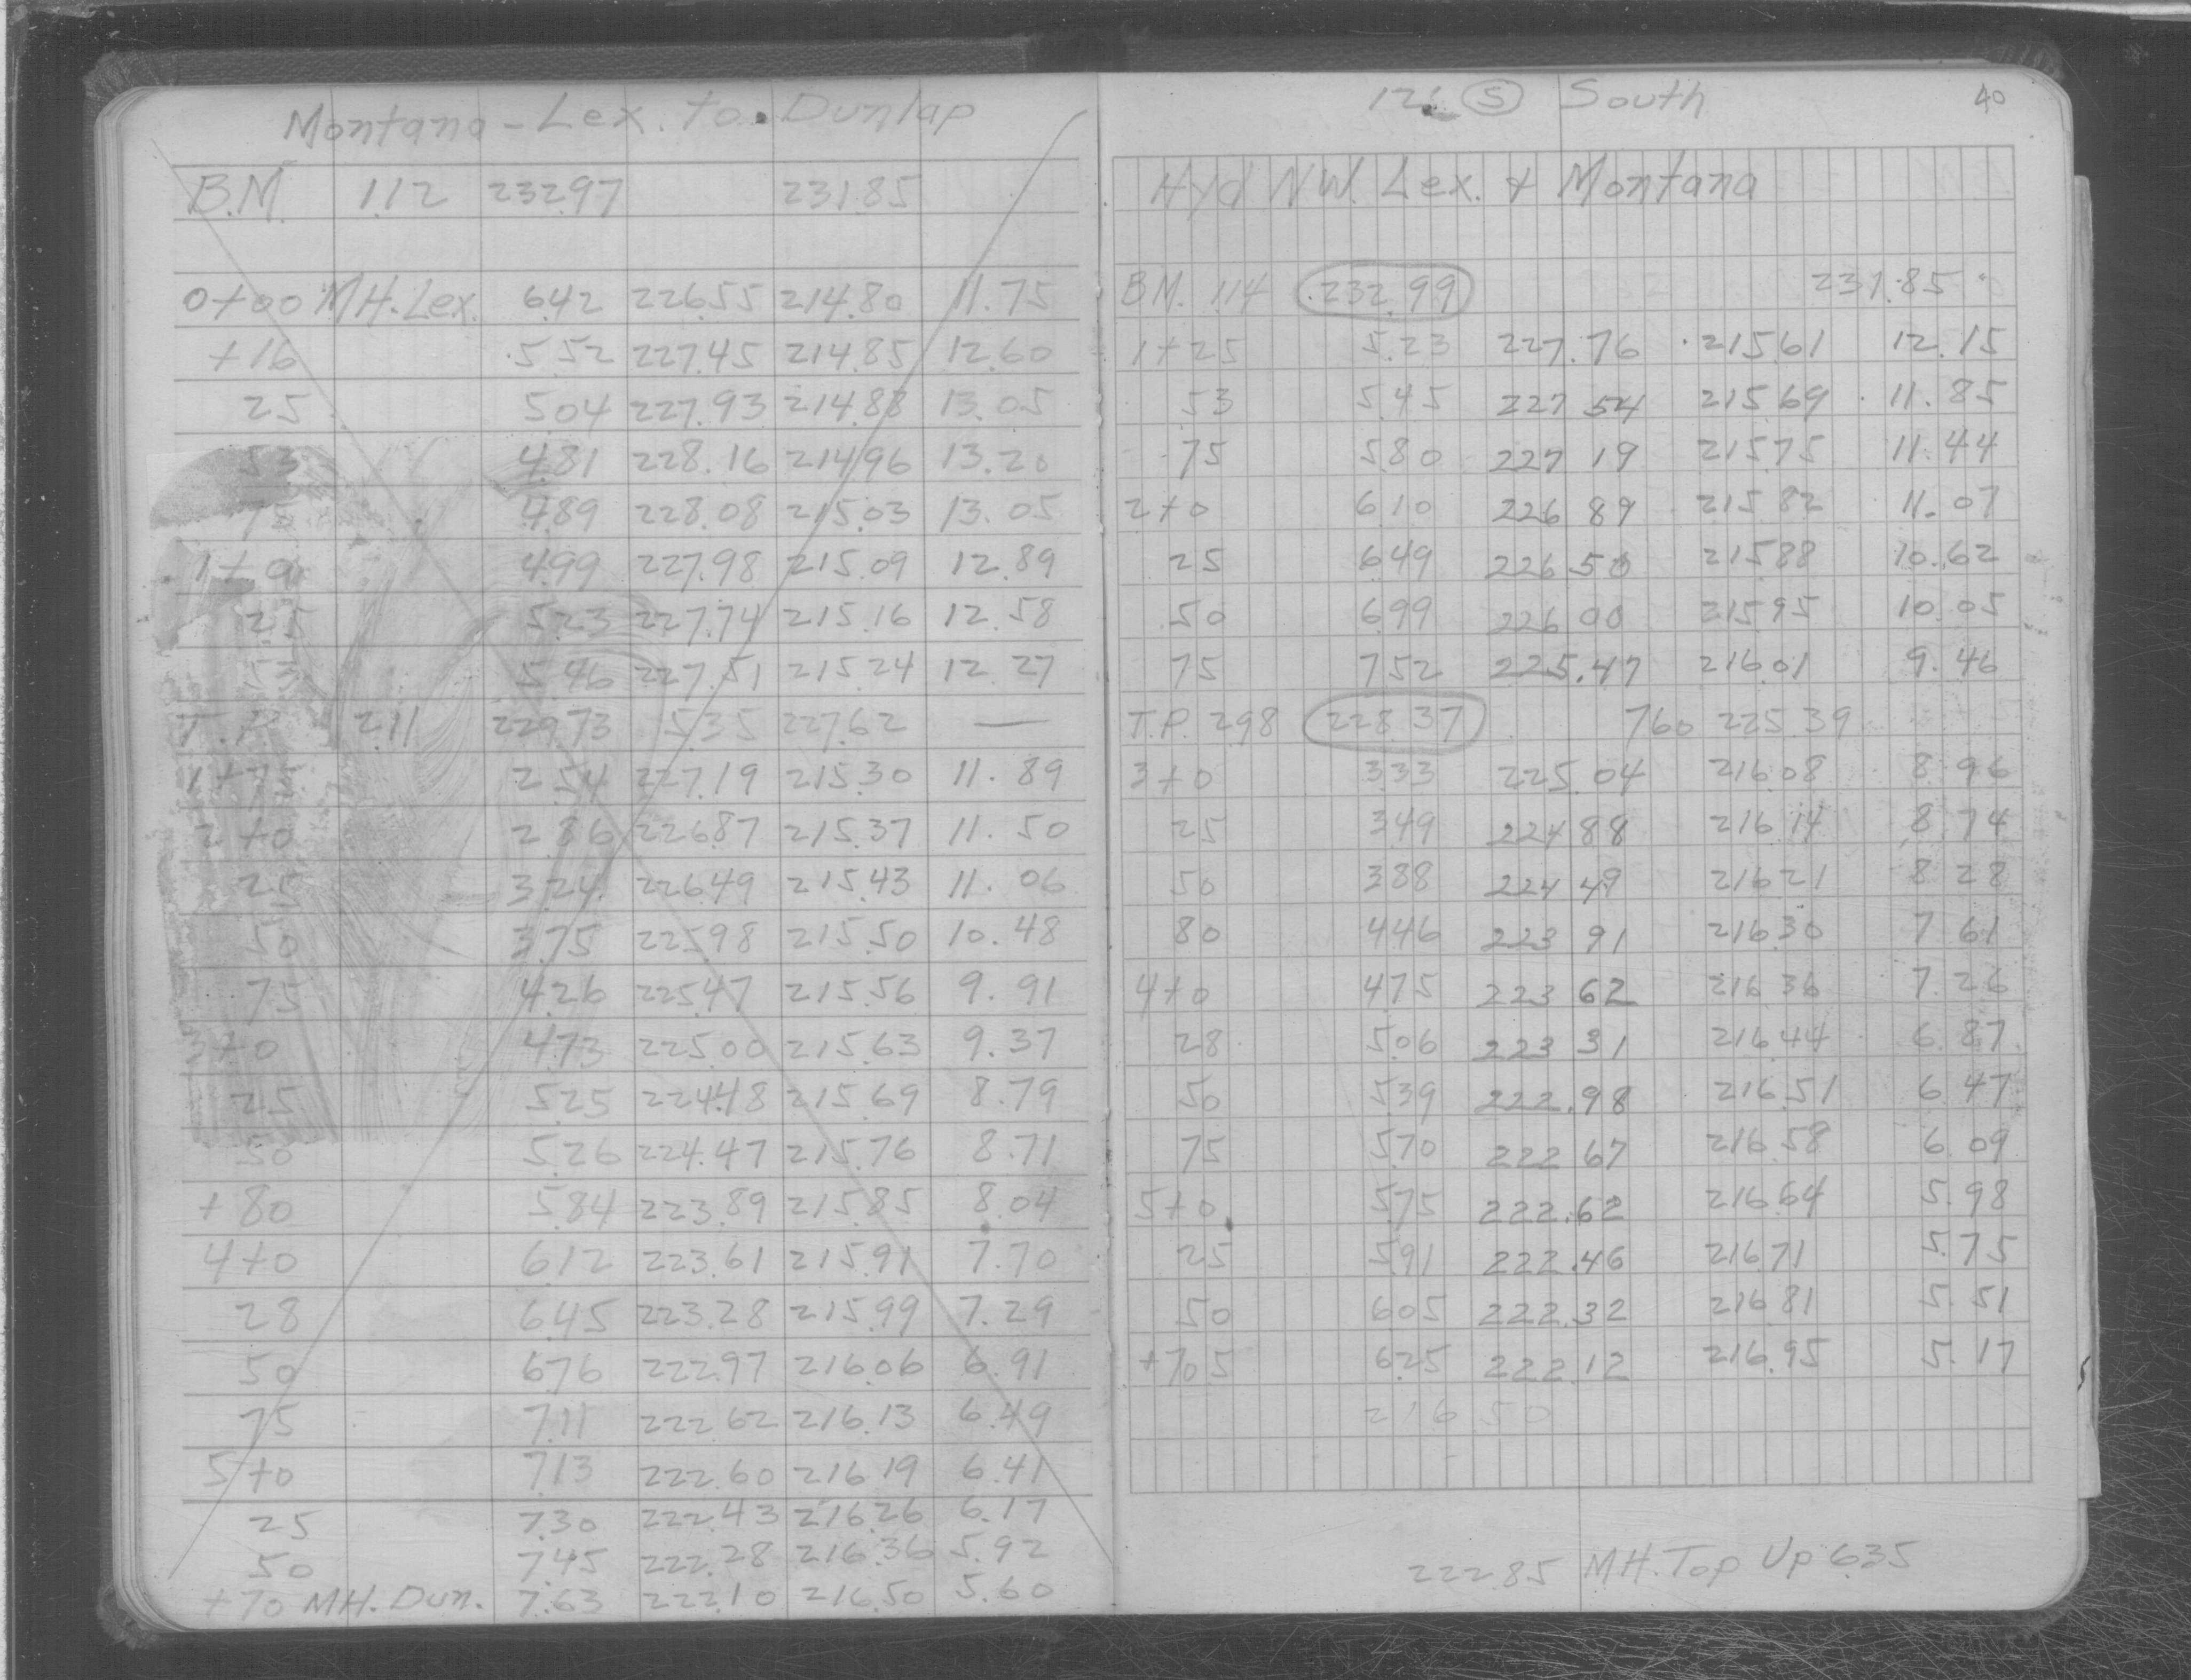 Montana - Lex. to Dunlap
B.M. 1.12 232.97 231.85
0+00 MH. Lex. 6.42 226.55 214.80 11.75
+16 5.52 227.45 214.85 12.60
25 5.04 227.93 214.88 13.05
53 4.81 228.16 214.96 13.20
75 4.89 228.08 215.03 13.05
1+0 4.99 227.98 215.09 12.89
25 5.23 227.74 215.16 12.58
53 5.46 227.51 215.24 12.27
T.P. 2.11 229.73 5.35 227.62 —
1+75 2.54 227.19 215.30 11.89
2+0 2.86 226.87 215.37 11.50
25 3.24 226.49 215.43 11.06
50 3.75 225.98 215.50 10.48
75 4.26 225.47 215.56 9.91
3+0 4.73 225.00 215.63 9.37
25 5.25 224.48 215.69 8.79
50 5.26 224.47 215.76 8.71
+80 5.84 223.89 215.85 8.04
4+0 6.12 223.61 215.91 7.70
28 6.45 223.28 215.99 7.29
50 6.76 222.97 216.06 6.91
75 7.11 222.62 216.13 6.49
5+0 7.13 222.60 216.19 6.41
25 7.30 222.43 216.26 6.17
50 7.45 222.28 216.36 5.92
+70 MH. Dun. 7.63 222.10 216.50 5.60
12" S South 40
Hyd NW. Lex. & Montana
B.M. 1.14 232.99 231.85
1+25 5.23 227.76 215.61 12.15
53 5.45 227.54 215.69 11.85
75 5.80 227.19 215.75 11.44
2+0 6.10 226.89 215.82 11.07
25 6.49 226.50 215.88 10.62
50 6.99 226.00 215.95 10.05
75 7.52 225.47 216.01 9.46
T.P. 2.98 228.37 7.60 225.39
3+0 3.33 225.04 216.08 8.96
25 3.49 224.88 216.14 8.74
50 3.88 224.49 216.21 8.28
80 4.46 223.91 216.30 7.61
4+0 4.75 223.62 216.36 7.26
28 5.06 223.31 216.44 6.87
50 5.39 222.98 216.51 6.47
75 5.70 222.67 216.58 6.09
5+0 5.75 222.62 216.64 5.98
25 5.91 222.46 216.71 5.75
50 6.05 222.32 216.81 5.51
+70.5 6.25 222.12 216.95 5.17
216.50
222.85 MH. Top Up 6.35